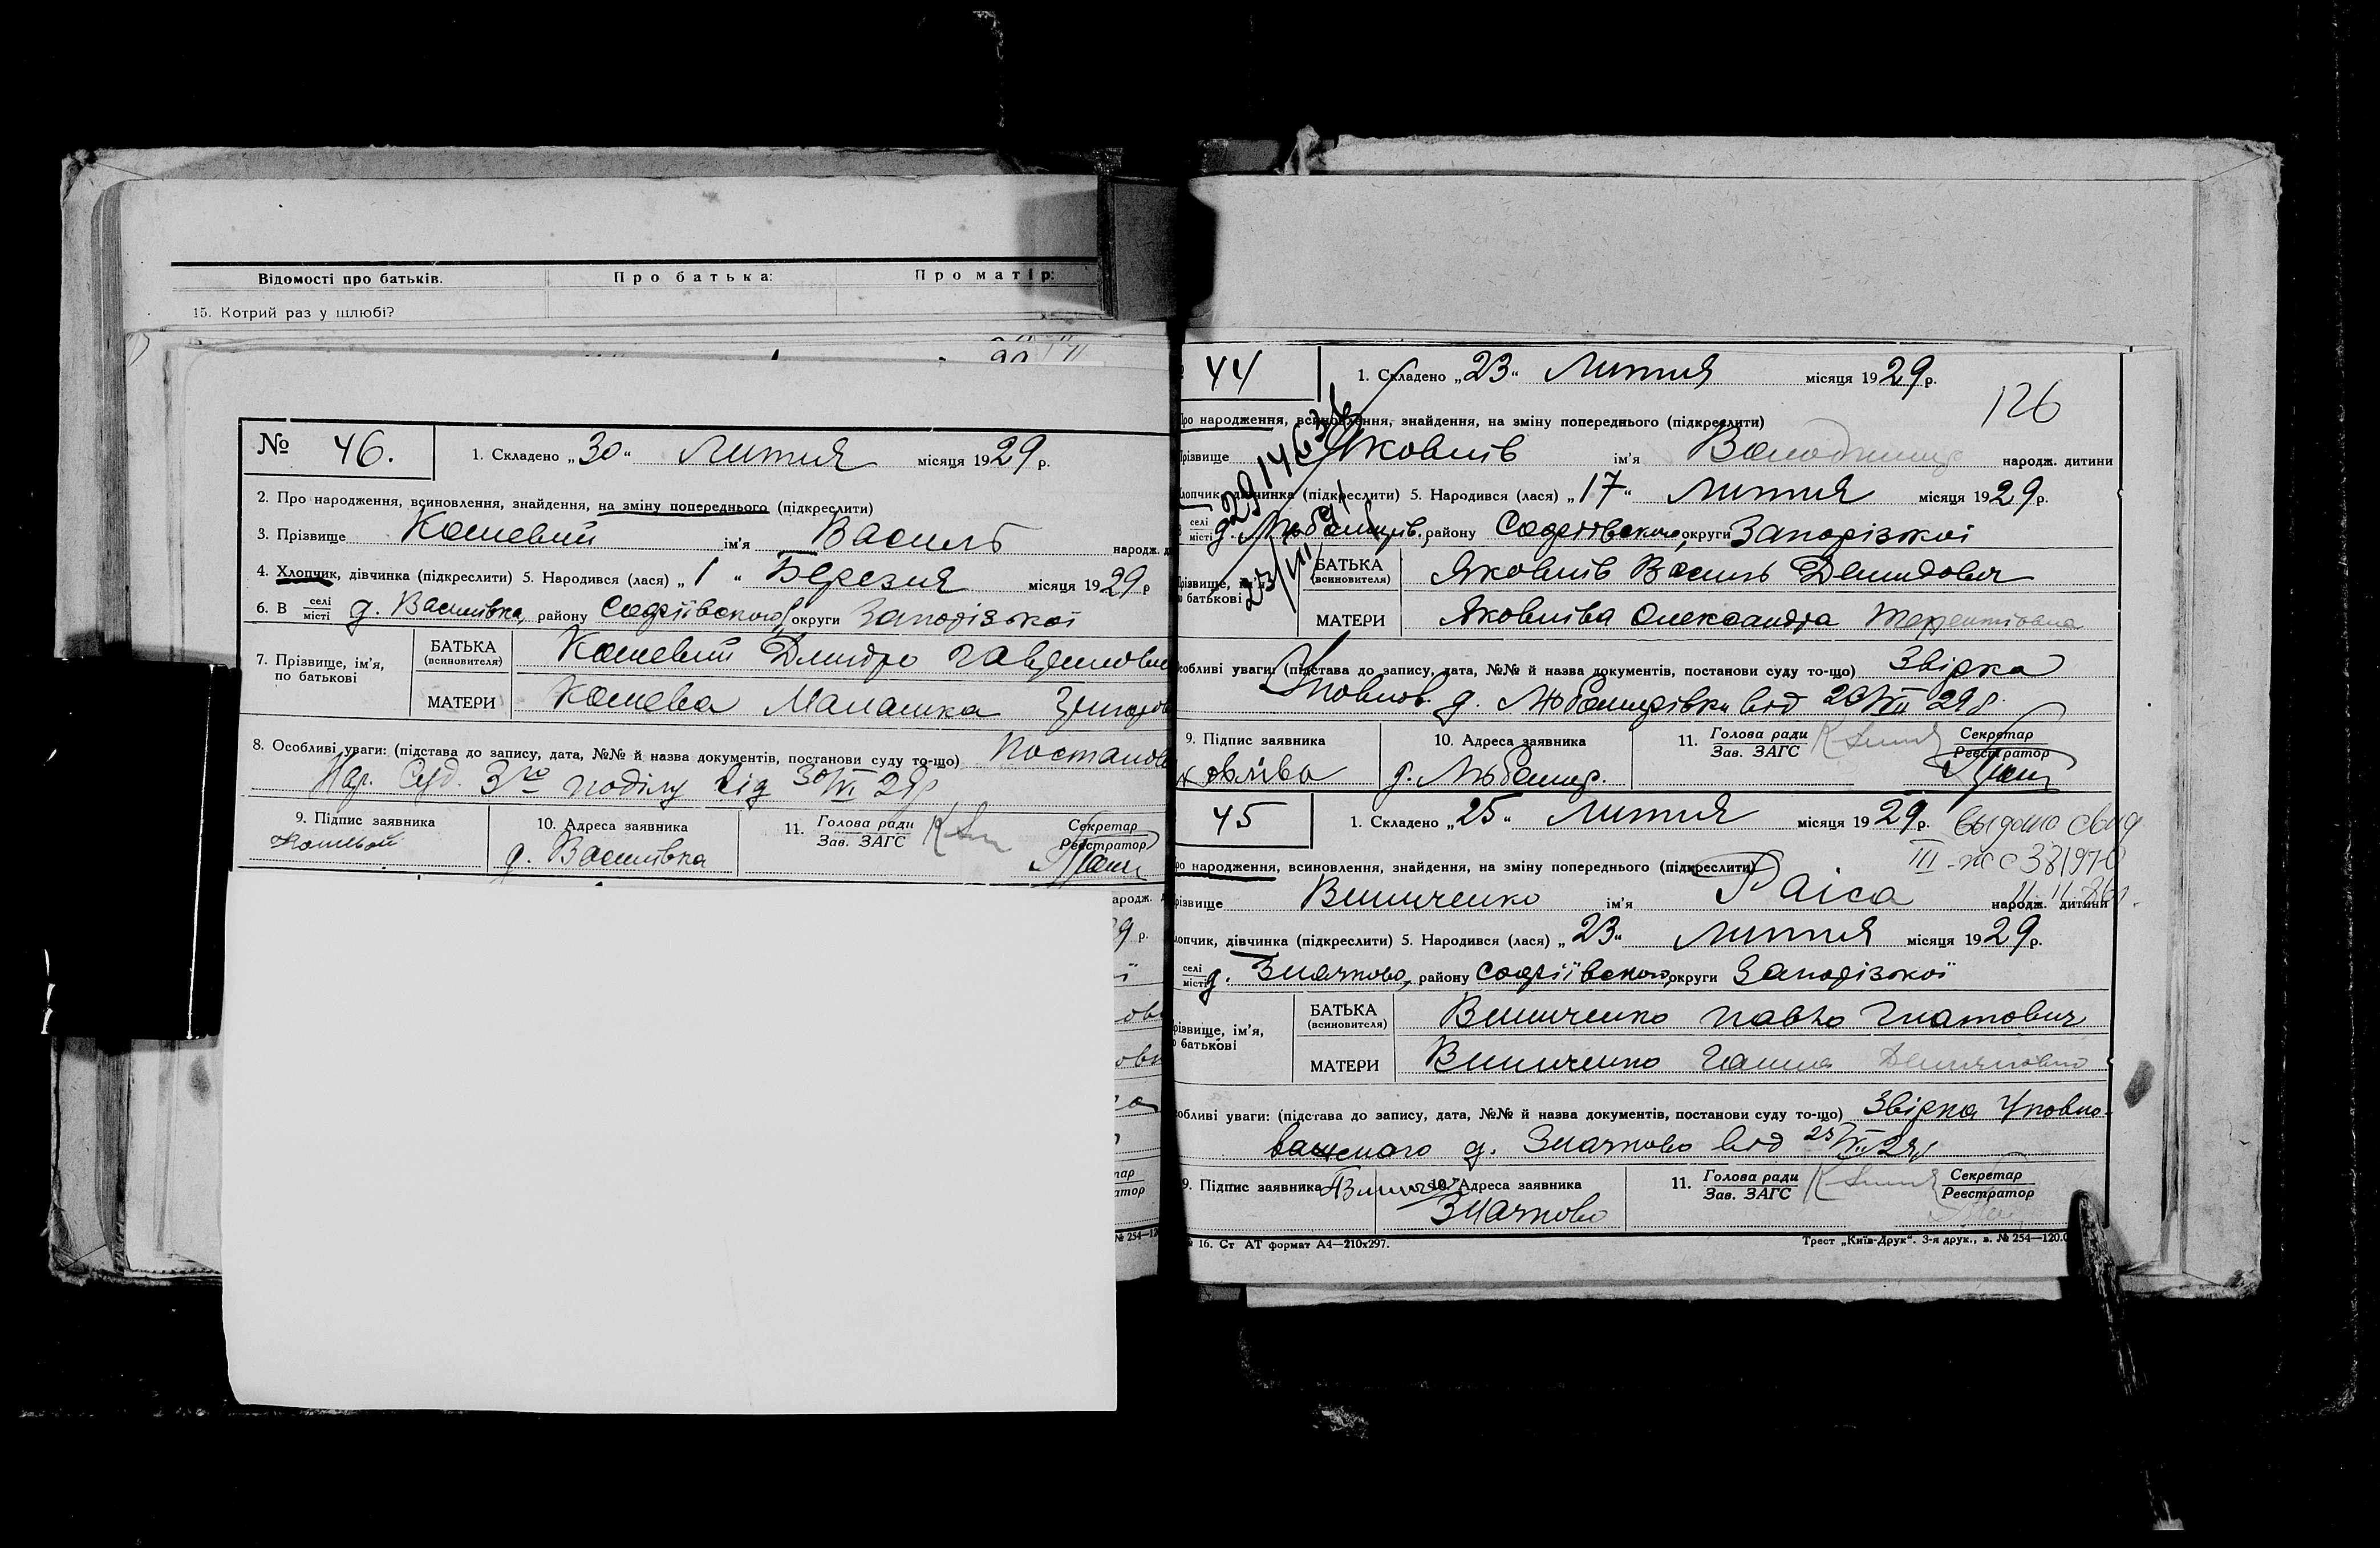 Відомості про батьків. Про батька: Про матір:
15. Котрий раз у шлюбі?
№ 46. 1. Складено „30“ Липня місяця 1929 р.
2. Про народження, всиновлення, знайдення, на зміну попереднього (підкреслити)
3. Прізвище Кошевий ім'я Василь народж. д
4. Хлопчик, дівчинка (підкреслити) 5. Народився (лася) „1“ Березня місяця 1929 р
6. В селі місті д. Василівка, району Софіївського, округи Запорізької
7. Прізвище, ім'я, по батькові
БАТЬКА (всиновителя) Кошевий Дмитро
МАТЕРИ Кошева Малашка
8. Особливі уваги: (підстава до запису, дата, №№ й назва документів, постанови суду то-що) Постанов
Нар. Суд. 3го поділу від 30/VI 29р
9. Підпис заявника 10. Адреса заявника 11. Голова ради Зав. ЗАГС Секретар Реєстратор
д. Василівка
ародж.
9 р.
№ 254—12
44 1. Складено „23“ Липня місяця 1929 р.
126
ро народження, всиновлення, знайдення, на зміну попереднього (підкреслити)
різвище Яковлів ім'я Володимир народж. дитини
лопчик, дівчинка (підкреслити) 5. Народився (лася) „17“ Липня місяця 1929 р.
селі місті д. Любомирів. району Софіївського, округи Запорізької
різвище, ім'я, о батькові
БАТЬКА (всиновителя) Яковлів Василь Демидович
МАТЕРИ Яковліва Олександра Терентіовна
собливі уваги: (підстава до запису, дата, №№ й назва документів, постанови суду то-що) Звірка
Уповнов. д. Любомирівки від 29р.
9. Підпис заявника 10. Адреса заявника 11. Голова ради Зав. ЗАГС Секретар Реєстратор
ковліва д. Любомир.
45 1. Складено „25“ Липня місяця 1929 р. выдано свид
III-
ро народження, всиновлення, знайдення, на зміну попереднього (підкреслити)
різвище Винниченко ім'я Раіса народж. дитини
лопчик, дівчинка (підкреслити) 5. Народився (лася) „23“ Липня місяця 1929 р.
селі місті д. Значково, району Софіївського, округи Запорізької
різвище, ім'я, о батькові
БАТЬКА (всиновителя) Винниченко Павло Гнатович
МАТЕРИ Винниченко Ганна
собливі уваги: (підстава до запису, дата, №№ й назва документів, постанови суду то-що) Звірка Уповно-
важеного д. Значково від
9. Підпис заявника 10. Адреса заявника 11. Голова ради Зав. ЗАГС Секретар Реєстратор
Значково
№ 16. Ст АТ формат А4—210х297. Трест „Київ-Друк“. 3-я друк., з. № 254—120.0